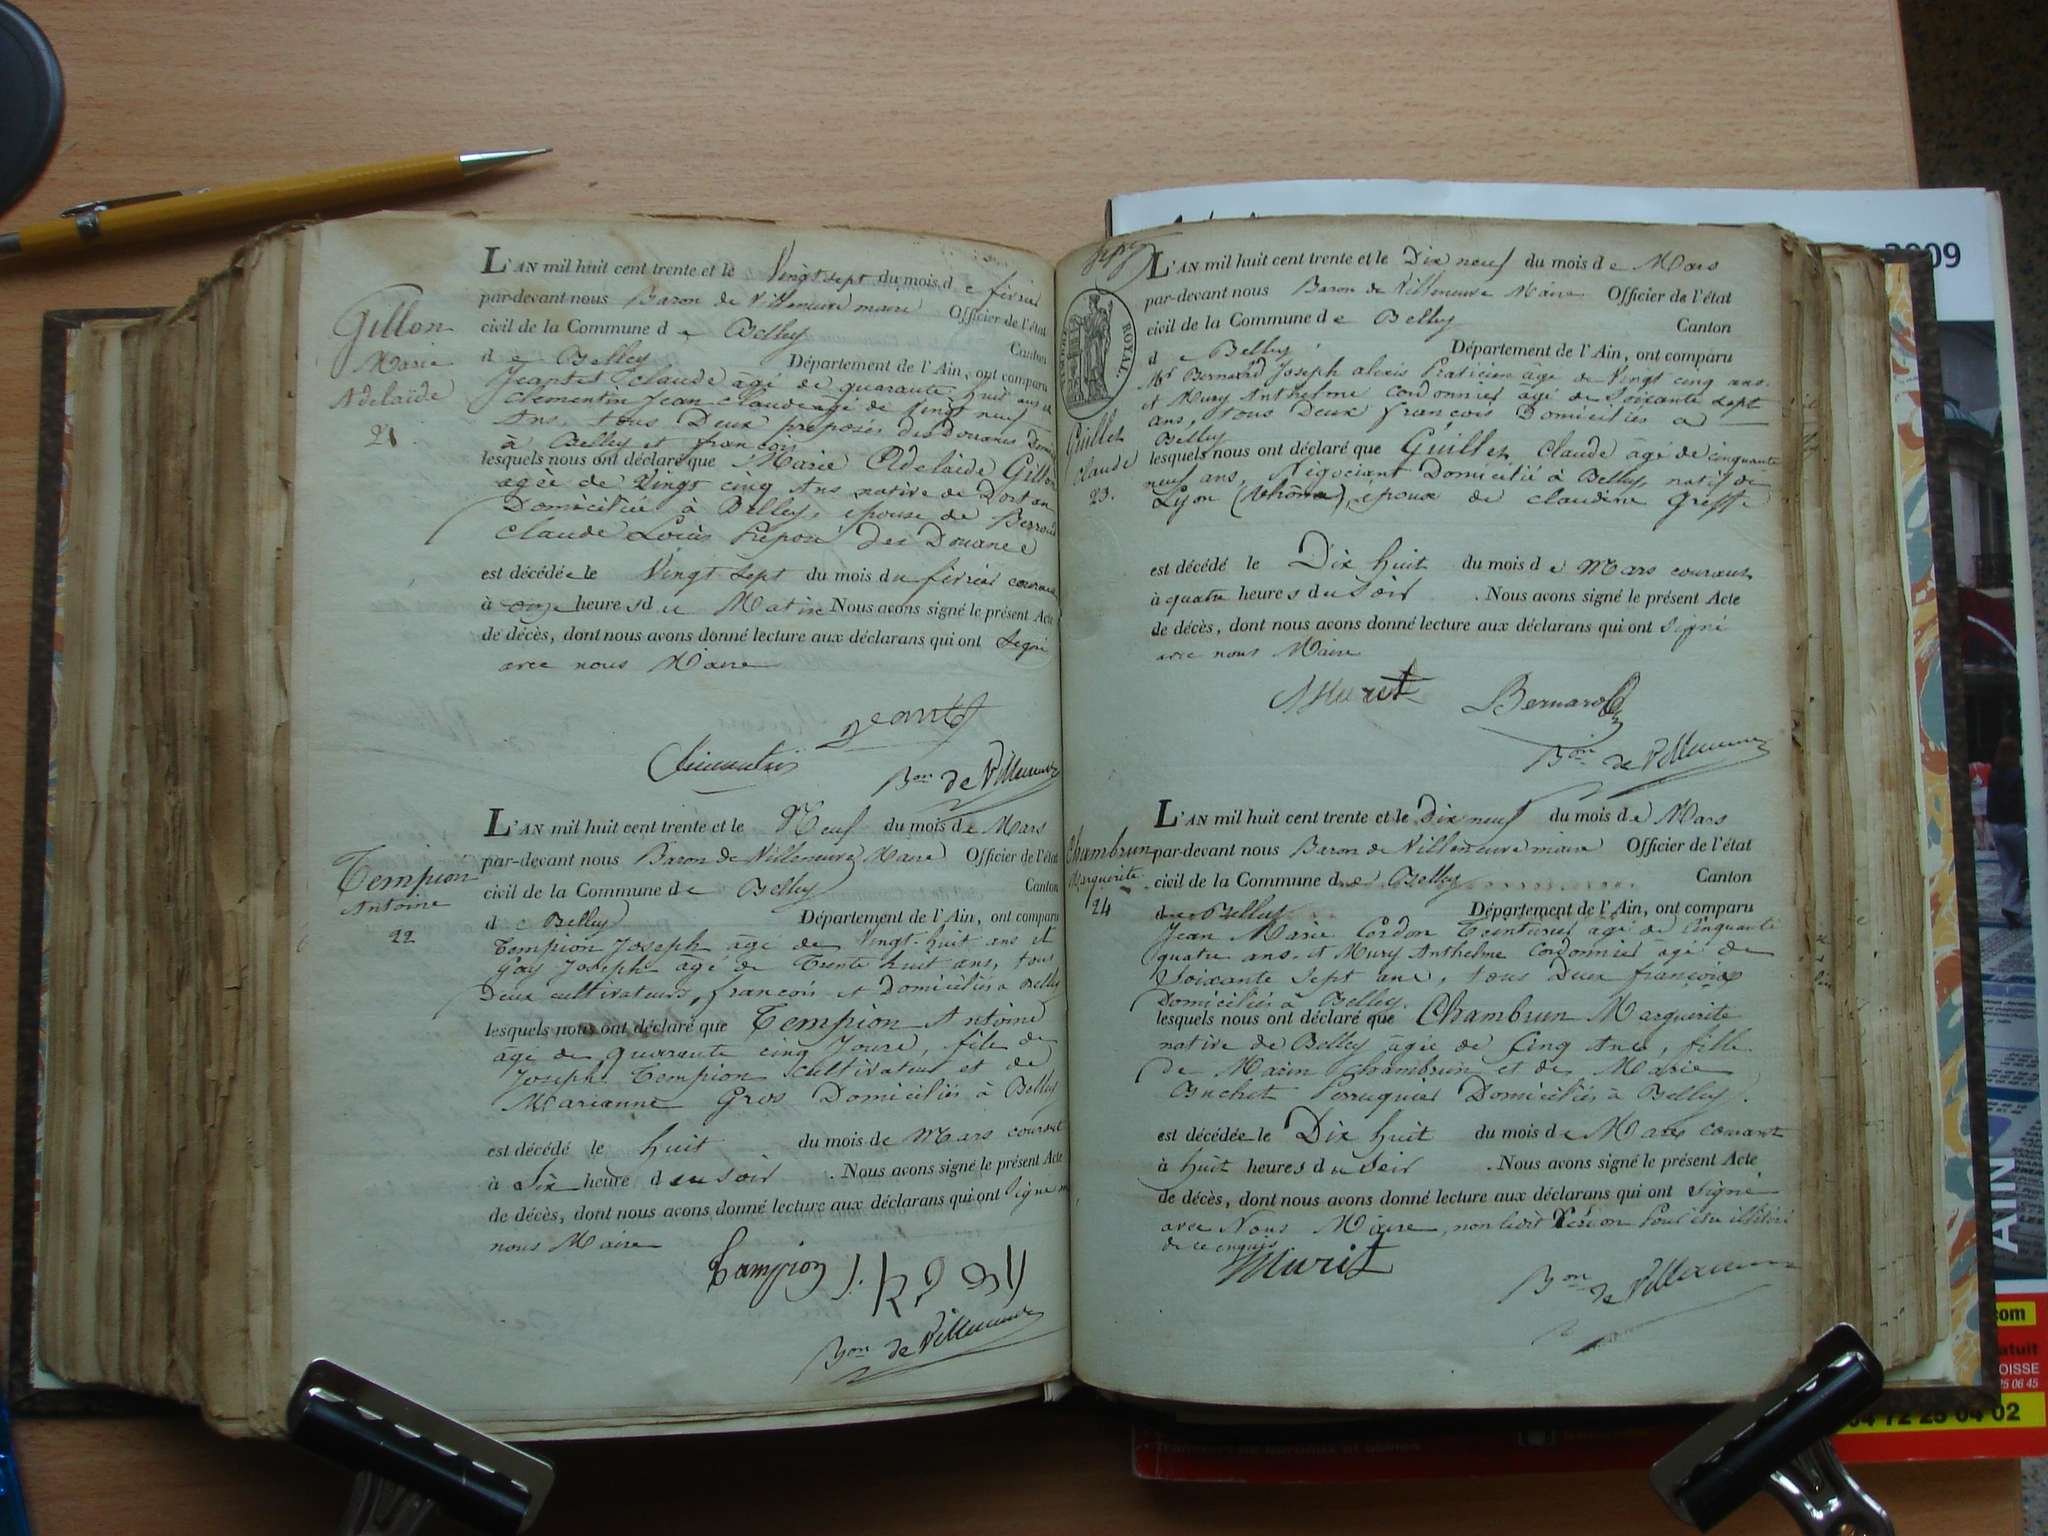 Gillon
Marie
Adelaïde
21.
L'AN mil huit cent trente et le Vingt sept du mois de février
par-devant nous Baron de Villeneuve maire Officier de l'état
civil de la Commune de Belley Canton
de Belley Département de l'Ain, ont comparu
Claude âgé de quarante huit ans et
Clementin Jean Claude âgé de Vingt neuf
Ans, tous Deux preposés des Douanes
à Belley et françois
lesquels nous ont déclaré que Marie Adelaïde Gillon
agée de Vingt cinq Ans native de Dortan
Domiciliée à Belley, epouse de Berrod
Claude Louis Préposé des Douanes
est décédée le Vingt Sept du mois du février courant
à onze heures du Matin Nous avons signé le présent Acte
de décès, dont nous avons donné lecture aux déclarans qui ont Signé
avec nous Maire
Bon de Villeneuve
Tempion
Antoine
22
L'AN mil huit cent trente et le Neuf du mois de Mars
par-devant nous Baron de Villeneuve Maire Officier de l'état
civil de la Commune de Belley Canton
de Belley Département de l'Ain, ont comparu
Tempion Joseph âgé de Vingt-huit ans et
Gay Joseph âgé de Trente huit ans, tous
Deux cultivateurs, françois et Domiciliés à Belley
lesquels nous ont déclaré que Tempion Antoine
âgé de quarante cinq Jours, fils de
Joseph Tempion Cultivateur et de
Marianne Gros Domiciliés à Belley
est décédé le huit du mois de Mars courant
à Six heure du Soir . Nous avons signé le présent Acte
de décès, dont nous avons donné lecture aux déclarans qui ont Signé
nous Maire
Tampion
Bon de Villeneuve
ROYAL.
Guillet
Claude
23.
L'AN mil huit cent trente et le Dix neuf du mois de Mars
par-devant nous Baron de Villeneuve Maire Officier de l'état
civil de la Commune de Belley Canton
de Belley Département de l'Ain, ont comparu
Mr Bernard Joseph alexis Praticien âgé de Vingt cinq ans.
et Mury Anthelme Cordonnier âgé de Soixante sept
ans, tous Deux françois Domiciliés à
Belley
lesquels nous ont déclaré que Guillet Claude âgé de cinquante
neuf ans, Négociant Domicilié à Belley natif de
Lyon (Rhône), epoux de claudine Greffe
est décédé le Dix huit du mois de Mars courant
à quatre heures du Soir . Nous avons signé le présent Acte
de décès, dont nous avons donné lecture aux déclarans qui ont Signé
avec nous Maire
Muret Bernard
Bon de Villeneuve
Chambrun
Marguerite
24
L'AN mil huit cent trente et le Dix neuf du mois de Mars
par-devant nous Baron de Villeneuve maire Officier de l'état
civil de la Commune de Belley Canton
de Belley Département de l'Ain, ont comparu
Jean Marie Cordon Teinturier âgé de Cinquante
quatre ans. et Mury Anthelme Cordonnier âgé de
Soixante Sept ans, tous Deux françois
Domiciliés à Belley.
lesquels nous ont déclaré que Chambrun Marguerite
native de Belley agée de Cinq Ans, fille
de Marin Chambrun et de Marie
Perruquier Domiciliés à Belley.
est décédée le Dix huit du mois de Mars courant
à huit heures du Soir . Nous avons signé le présent Acte
de décès, dont nous avons donné lecture aux déclarans qui ont Signé
avec Nous Maire, non ledit Cordon Pour être illitéré
de ce enquis
Muret
Bon de Villeneuve
2009
AIN
.com
04 72 25 04 02